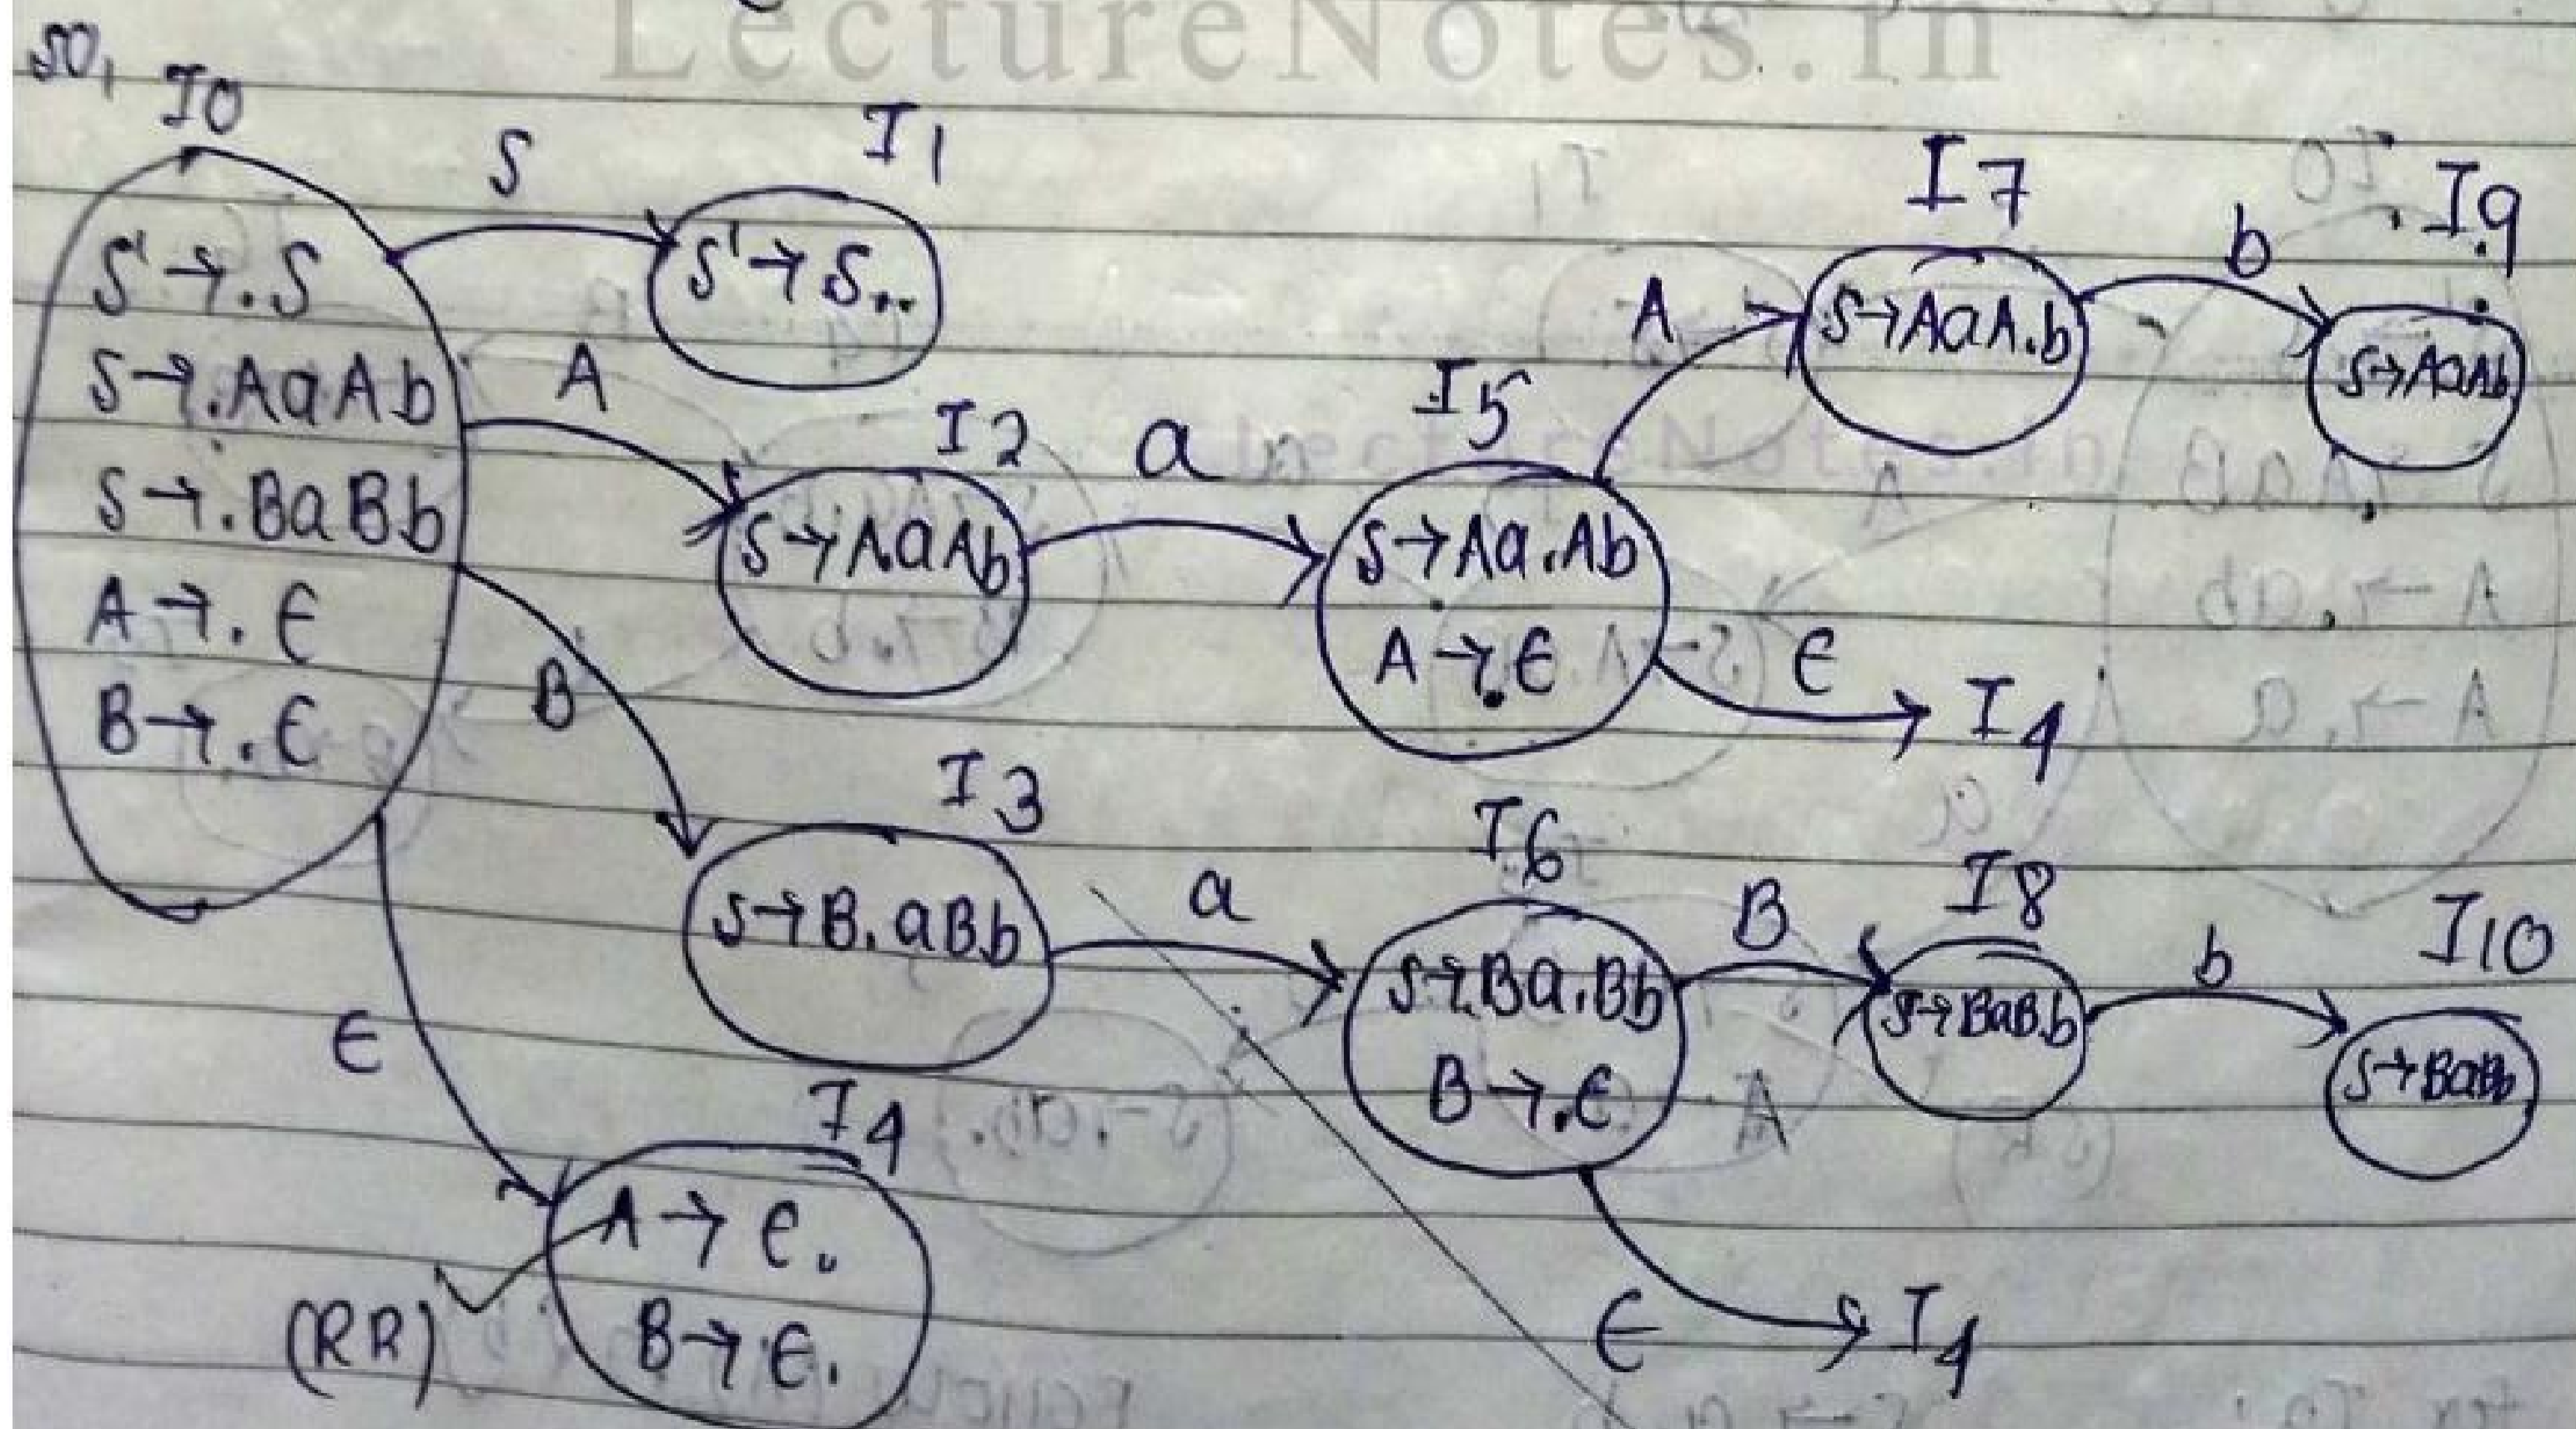 LectureNotes.in
so,
I0
S' → .S
S → .AaAb
S → .BaBb
A → .ϵ
B → .ϵ
S
I1
S' → S..
A
I2
S → A.aAb
a
I5
S → Aa.Ab
A → .ϵ
A
I7
S → AaA.b
b
I9
S → AaAb
ϵ
I4
B
I3
S → B.aBb
a
I6
S → Ba.Bb
B → .ϵ
B
I8
S → BaB.b
b
I10
S → BaBb
ϵ
I4
ϵ
I4
A → ϵ.
B → ϵ.
(RR)